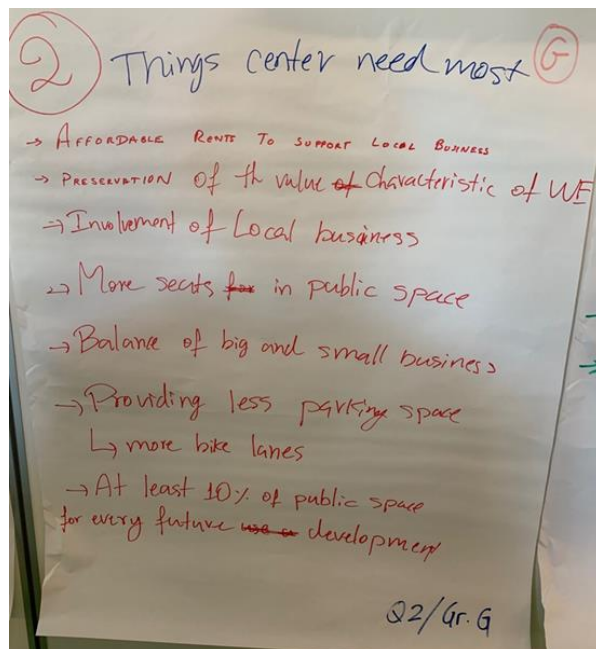 2 Things center need most G
→ AFFORDABLE RENTS TO SUPPORT LOCAL BUSINESS
→ PRESERVATION of th value of characteristic of WE
→ Involvement of Local business
→ More seats for in public space
→ Balane of big and small business
→ Providing less parking space
↳ more bike lanes
→ At least 10% of public space
for every future development
Q2/Gr. G